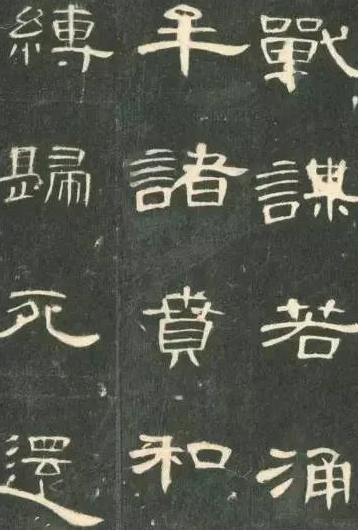 戰謀若涌
牟諸賁和
縛歸死還